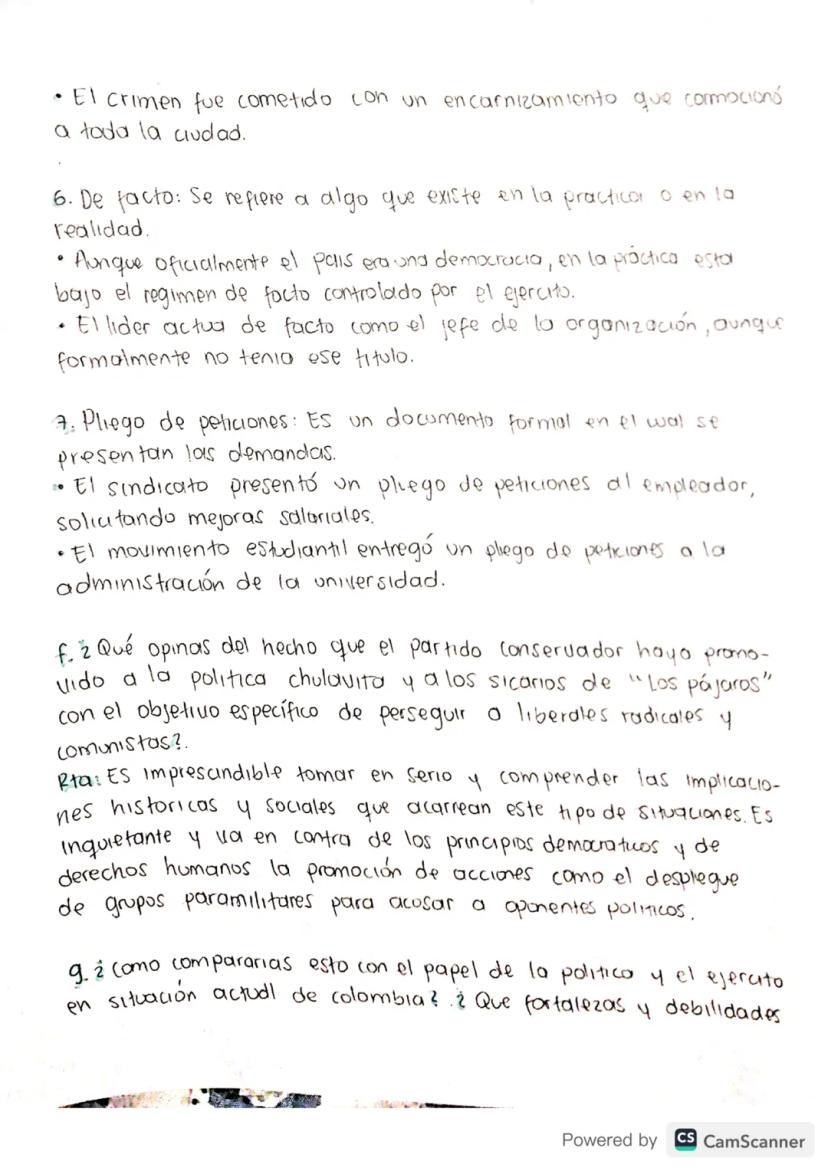 • El crimen fue cometido con un encarnizamiento que conmocionó
a toda la ciudad.
6. De facto: Se refiere a algo que existe en la practica o en la
realidad.
• Aunque oficialmente el pais era una democracia, en la práctica esta
bajo el regimen de facto controlado por el ejercito.
• El lider actua de facto como el jefe de la organización, aunque
formalmente no tenia ese titulo.
7. Pliego de peticiones: Es un documento formal en el cual se
presentan las demandas.
• El sindicato presentó un pliego de peticiones al empleador,
solicitando mejoras salariales.
• El movimiento estudiantil entregó un pliego de peticiones a la
administración de la universidad.
f. ¿Qué opinas del hecho que el partido conservador haya promo-
vido a la politica chulavita y a los sicarios de "Los pájaros"
con el objetivo específico de perseguir a liberales radicales y
comunistas?.
Rta: Es impresandible tomar en serio y comprender las implicacio-
nes historicas y sociales que acarrean este tipo de situaciones. Es
inquietante y va en contra de los principios democraticos y de
derechos humanos la promoción de acciones como el despliegue
de grupos paramilitares para acusar a oponentes politicos.
g. ¿Como compararias esto con el papel de la politica y el ejercito
en situación actual de colombia? ¿Que fortalezas y debilidades
Powered by CS CamScanner